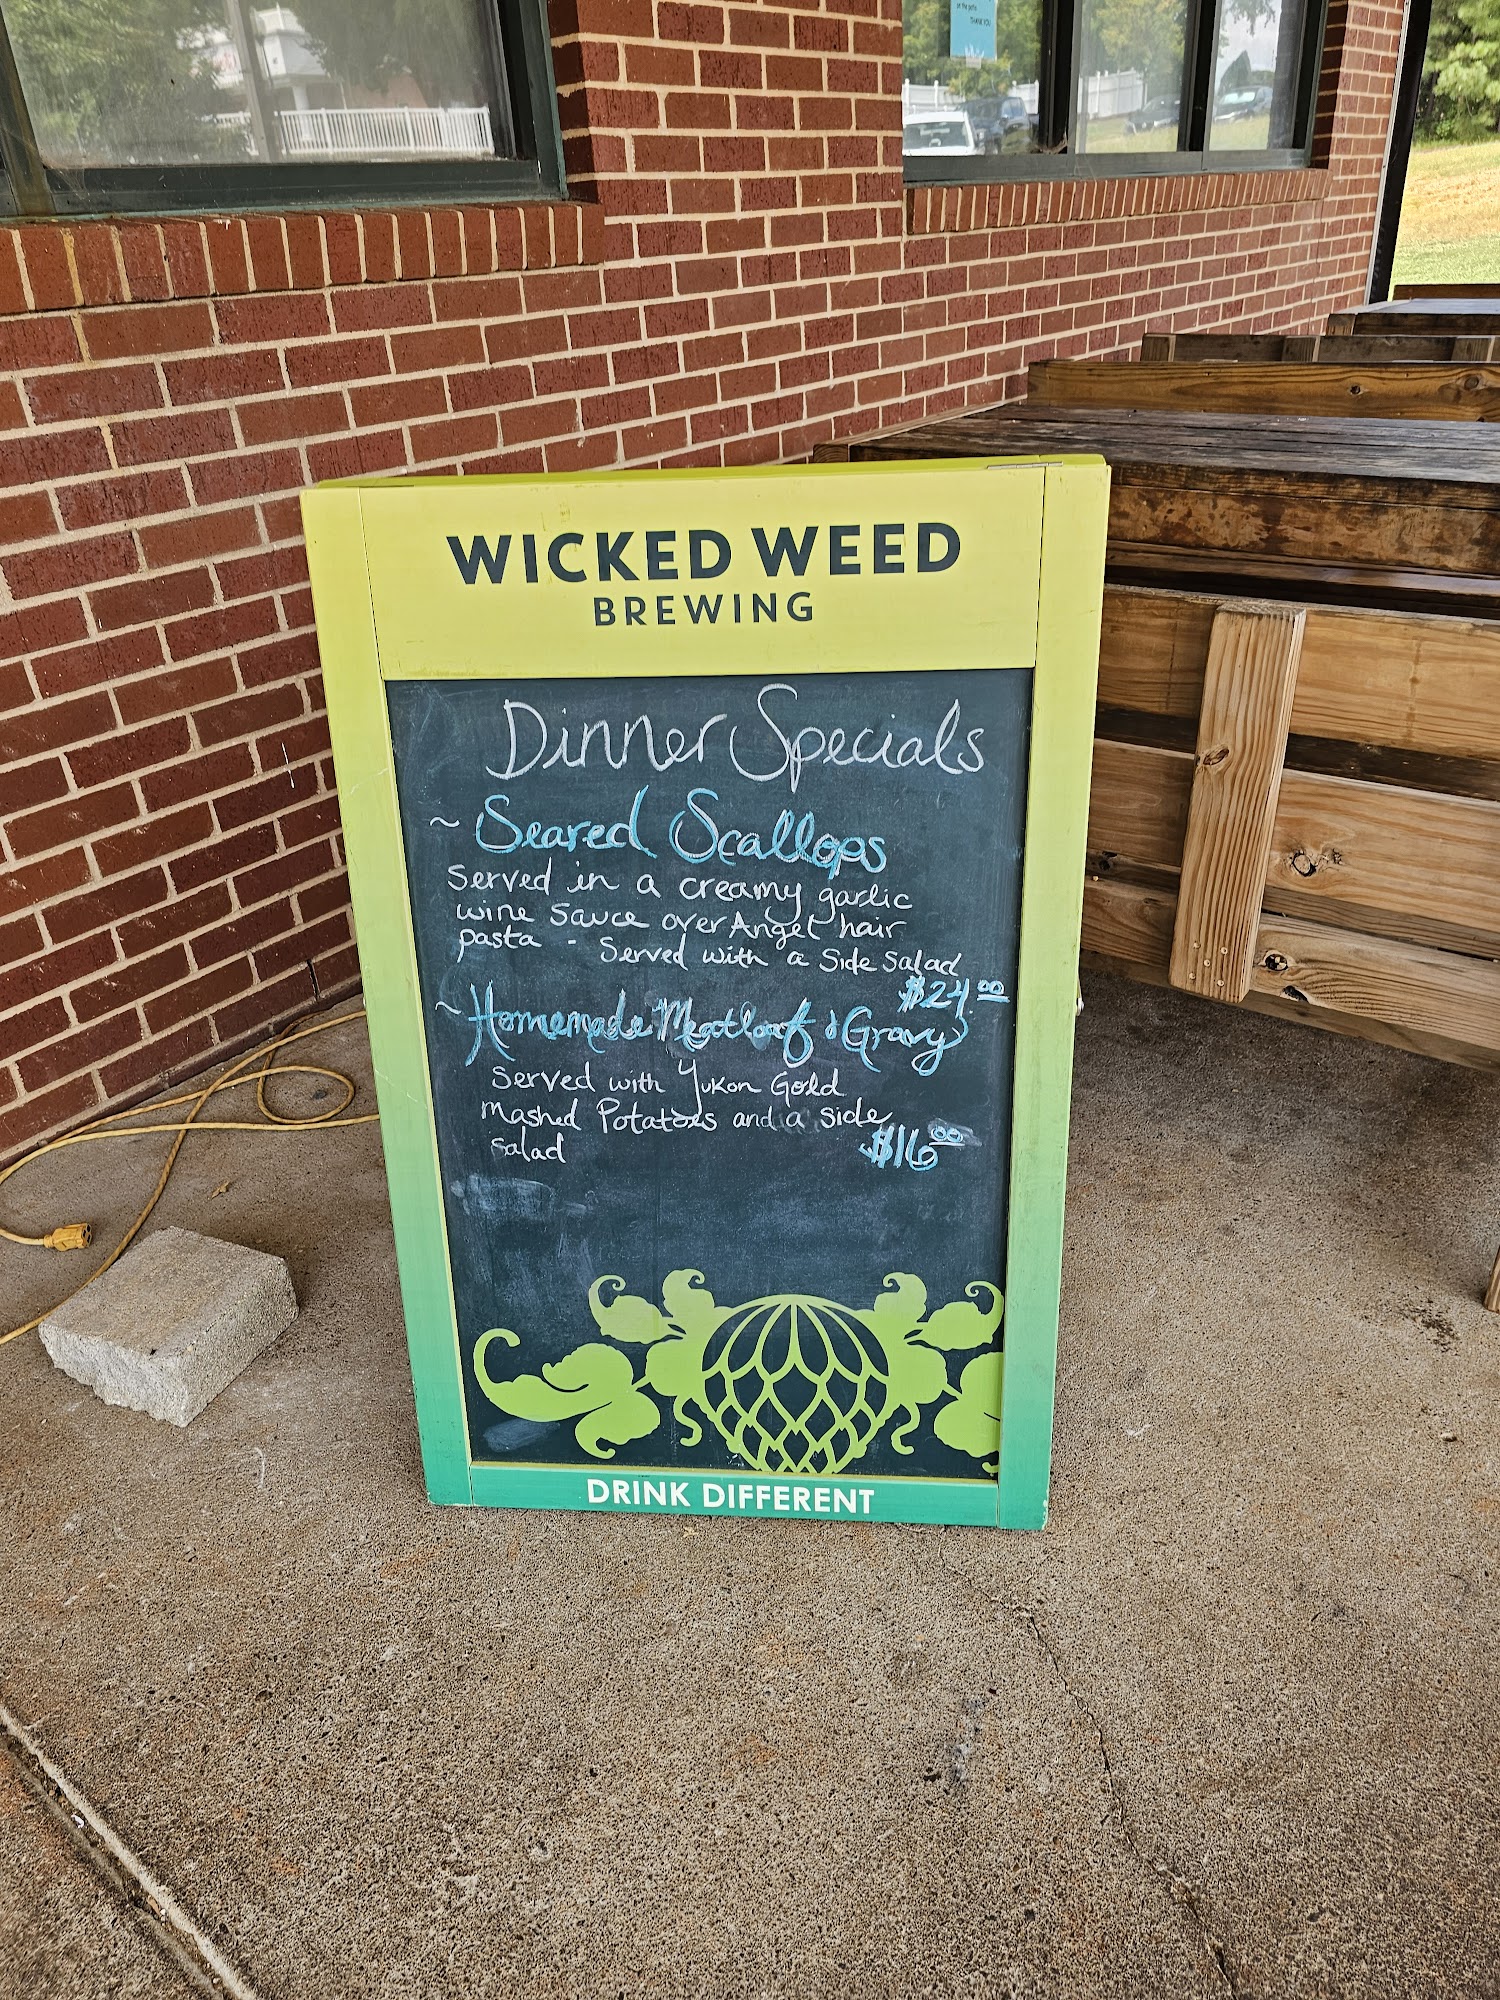 on the patio
THANK YOU
WICKED WEED
BREWING
Dinner Specials
~ Seared Scallops
Served in a creamy garlic
wine sauce over Angel hair
pasta - Served with a side salad
$24.00
~ Homemade Meatloaf & Gravy
Served with Yukon Gold
mashed Potatoes and a side
salad
$16.00
DRINK DIFFERENT